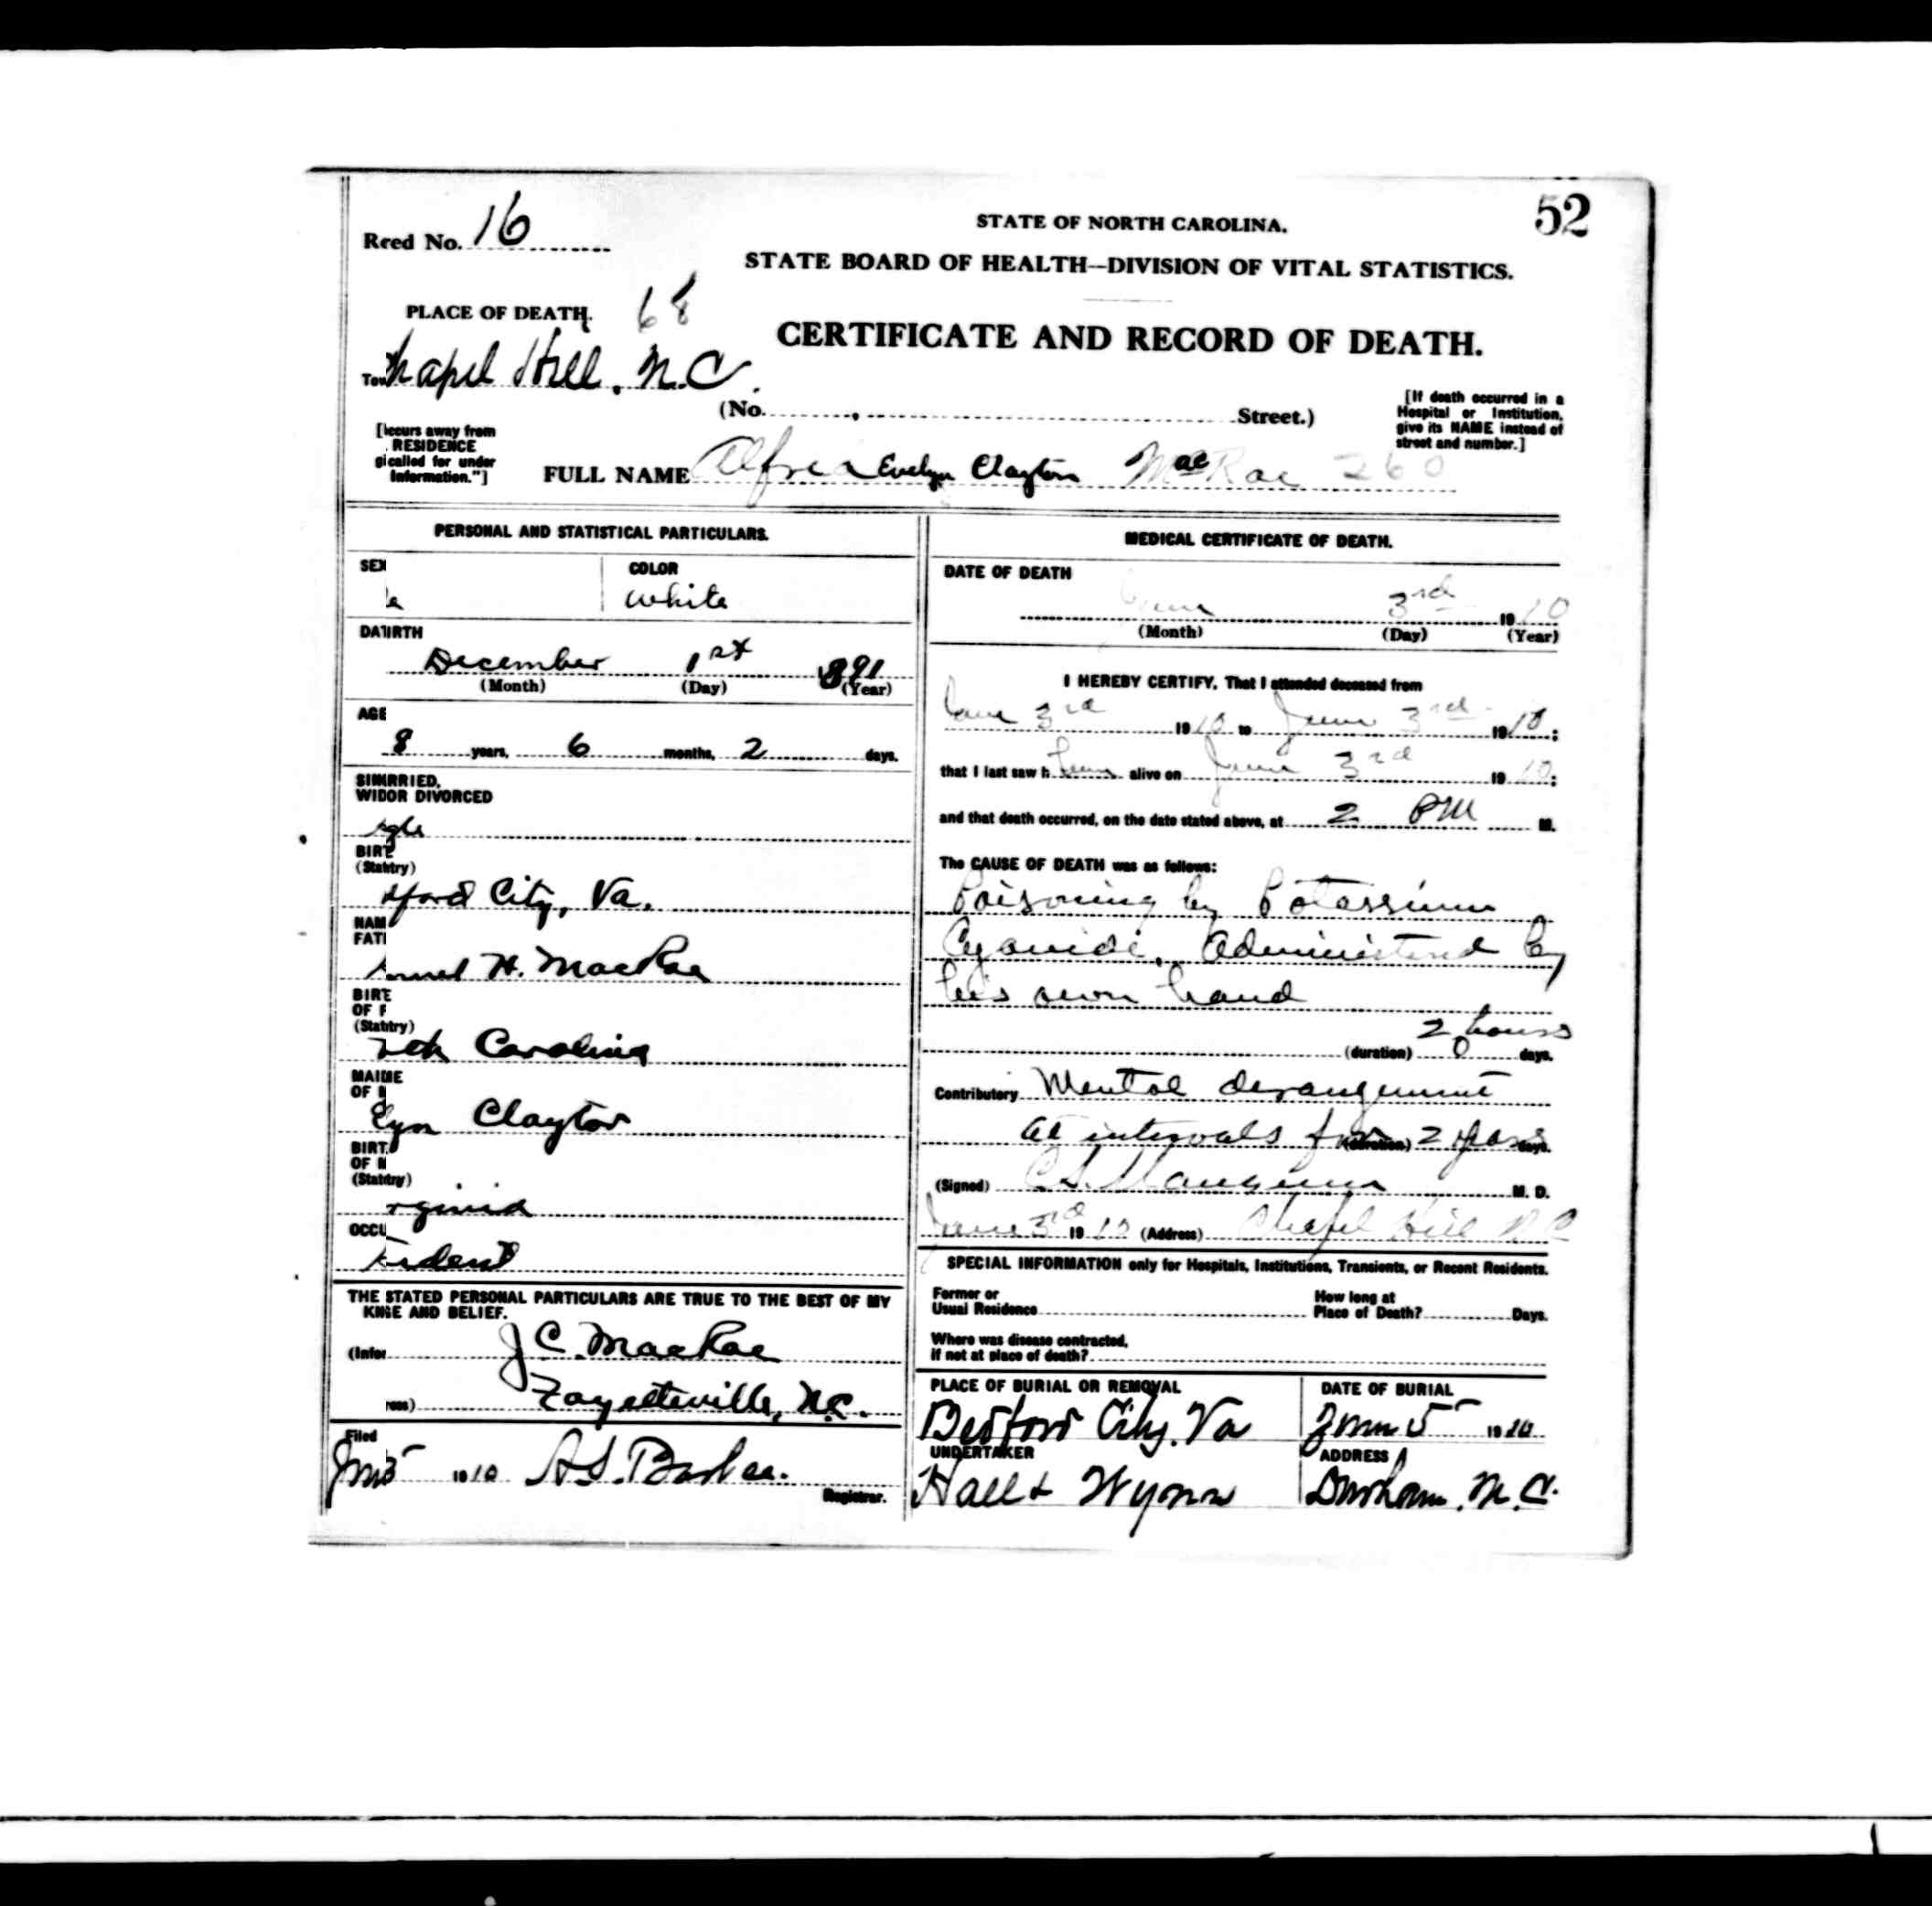 52
Rced No. 16
STATE OF NORTH CAROLINA.
STATE BOARD OF HEALTH—DIVISION OF VITAL STATISTICS.
PLACE OF DEATH. 68
CERTIFICATE AND RECORD OF DEATH.
Tow hapel Hill, N.C.
(No. Street.)
[If death occurred in a
Hospital or Institution,
give its NAME instead of
street and number.]
[ccurs away from
RESIDENCE
gi called for under
Information."]
FULL NAME Alfred Evelyn Clayton MacRae 260
PERSONAL AND STATISTICAL PARTICULARS.
SEX
e
COLOR
White
DATIRTH
December 1st 1891
(Month) (Day) (Year)
AGE
8 years, 6 months, 2 days.
SINRRIED,
WIDOR DIVORCED
ngle
BIRT
(Statntry)
dford City, Va.
NAM
FATI
muel H. MacRae
BIRT
OF F
(Statntry)
rth Carolina
MAIDE
OF M
elyn Claytor
BIRT
OF M
(Statntry)
rginia
OCCU
tudent
THE STATED PERSONAL PARTICULARS ARE TRUE TO THE BEST OF MY
KNGE AND BELIEF.
(Infor J C. MacRae
ress) Fayetteville, N.C.
Filed
Jun 5 1910 Registrar.
MEDICAL CERTIFICATE OF DEATH.
DATE OF DEATH
June 3rd 1910
(Month) (Day) (Year)
I HEREBY CERTIFY, That I attended deceased from
June 3rd 1910 to June 3rd 1910;
that I last saw h alive on June 3rd 1910;
and that death occurred, on the date stated above, at 2 PM M.
The CAUSE OF DEATH was as follows:
Poisoning by Potassium
Cyanide, Administered by
his own hand
2 hours
(duration) 0 days.
Contributory Mental derangement
at intervals for (duration) 2 years days.
(Signed) C.S. Mangum M. D.
June 3rd 1910 (Address) Chapel Hill N.C
SPECIAL INFORMATION only for Hospitals, Institutions, Transients, or Recent Residents.
Former or
Usual Residence
How long at
Place of Death? Days.
Where was disease contracted,
if not at place of death?
PLACE OF BURIAL OR REMOVAL
Bedford City, Va
DATE OF BURIAL
June 5 1910
UNDERTAKER
Hall & Wynn
ADDRESS
Durham, N.C.